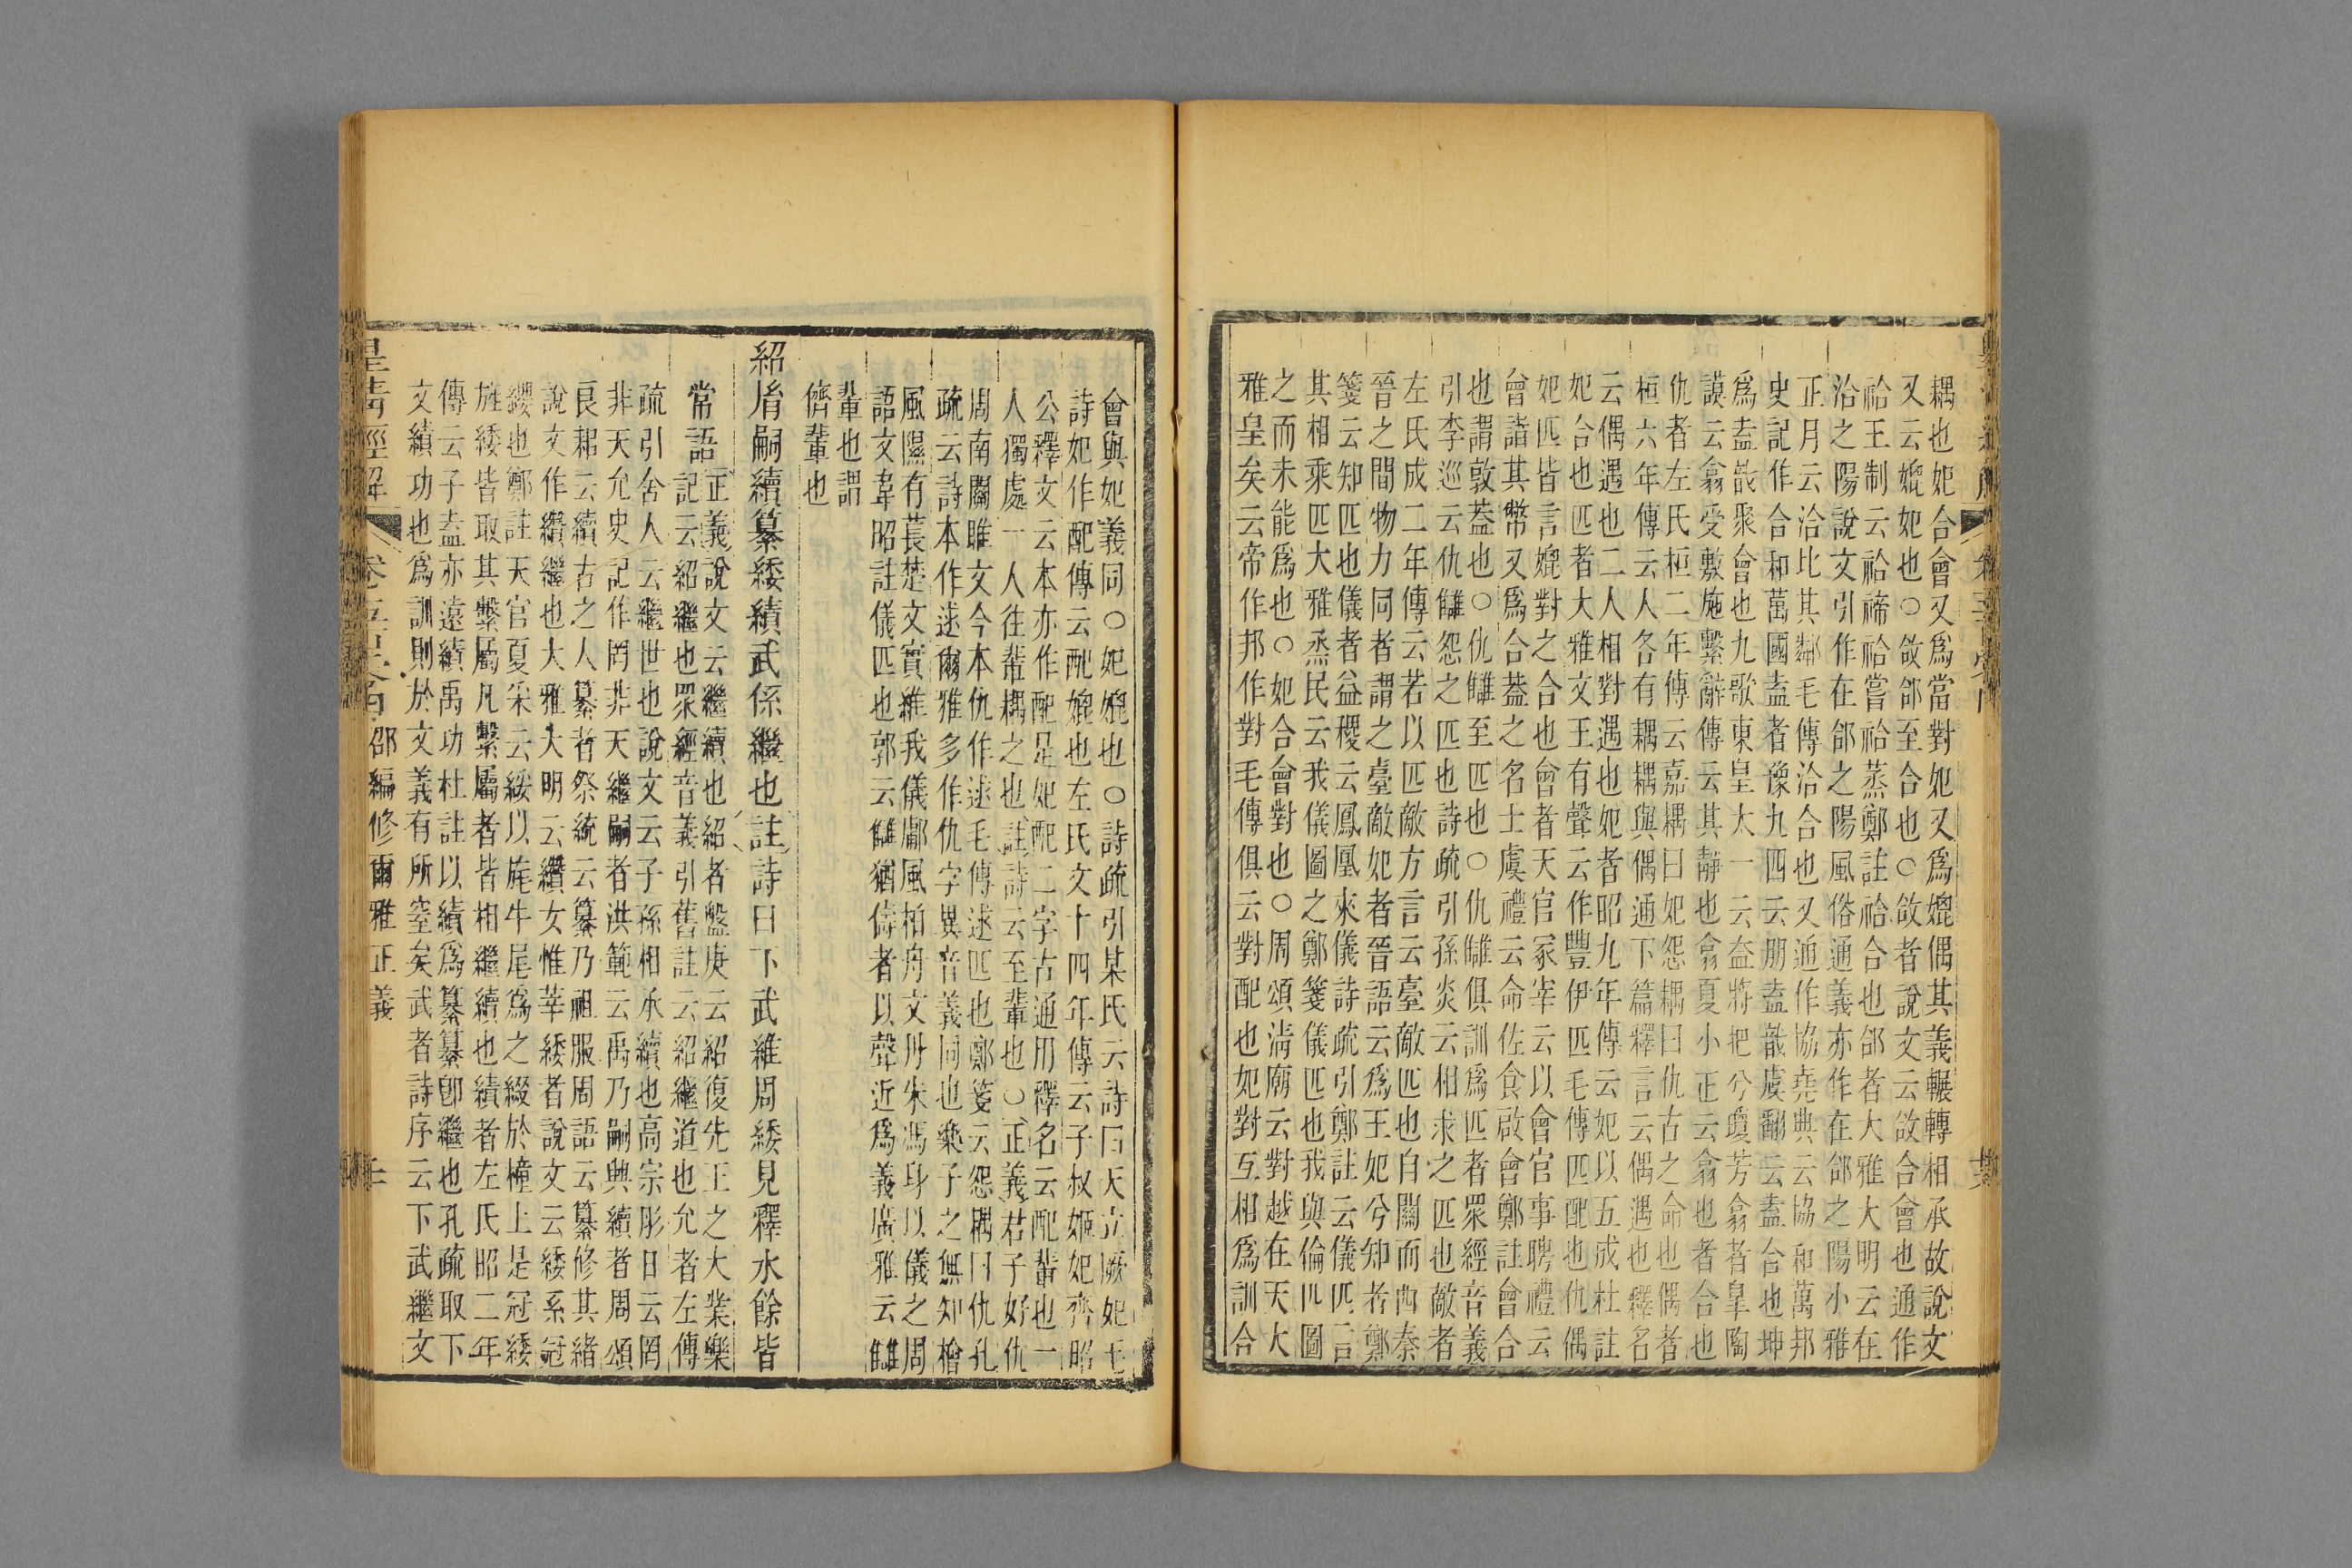 耦也妃合會又爲當對妃又爲媲偶其義輾轉相承故說文
又云媲妃也○㪉郃至合也○㪉者說文云㪉合會也通作
祫王制云祫禘祫嘗祫蒸鄭註祫合也郃者大雅大明云在
洽之陽說文引作在郃之陽風俗通義亦作在郃之陽小雅
正月云洽比其鄰毛傳洽合也又通作協堯典云協和萬邦
史記作合和萬國盍者豫九四云朋盍戠虞翻云盍合也坤
爲盍戠聚會也九歌東皇太一云盍將把兮瓊芳翕者皐陶
謨云翕受敷施繫辭傳云其靜也翕夏小正云翕也者合也
仇者左氏桓二年傳云嘉耦曰妃怨耦曰仇古之命也偶者
桓六年傳云人各有耦耦與偶通下篇釋言云偶遇也釋名
云偶遇也二人相對遇也妃者昭九年傳云妃以五成杜註
妃合也匹者大雅文王有聲云作豐伊匹毛傳匹配也仇偶
妃匹皆言媲對之合也會者天官冢宰云以會官事聘禮云
曾諧其幣又爲合葢之名士虞禮云命佐食啟會鄭註會合
也謂敦葢也○仇讎至匹也○仇讎俱訓爲匹者眾經音義
引李巡云仇讎怨之匹也詩疏引孫炎云相求之匹也敵者
左氏成二年傳云若以匹敵方言云臺敵匹也自關而西秦
晉之間物力同者謂之臺敵妃者晉語云爲王妃兮知者鄭
箋云知匹也儀者益稷云鳳凰來儀詩疏引鄭註云儀匹言
其相乘匹大雅烝民云我儀圖之鄭箋儀匹也我與倫匹圖
之而未能爲也○妃合會對也○周頌淸廟云對越在天大
雅皇矣云帝作邦作對毛傳俱云對配也妃對互相爲訓合
會與妃義同○妃媲也○詩疏引某氏云詩曰天立厥妃毛
詩妃作配傳云配媲也左氏文十四年傳云子叔姬妃齊昭
公釋文云本亦作配是妃配二字古通用釋名云配輩也一
人獨處一人往輩耦之也註詩云至輩也○正義君子好仇
周南關雎文今本仇作逑毛傳逑匹也鄭箋云怨耦曰仇孔
疏云詩本作逑爾雅多作仇字異音義同也樂子之無知檜
風隰有萇楚文實維我儀鄘風柏舟文丹朱馮身以儀之周
語文韋昭註儀匹也郭云讎猶儔者以聲近爲義廣雅云讎
輩也謂
儕輩也
紹胤嗣續纂緌績武係繼也註詩曰下武維周緌見釋水餘皆
常語正義說文云繼續也紹者盤庚云紹復先王之大業樂
記云紹繼也眾經音義引舊註云紹繼道也允者左傳
疏引舍人云繼世也說文云子孫相承續也高宗肜日云罔
非天允史記作罔非天繼嗣者洪範云禹乃嗣興續者周頌
良耜云續古之人纂者祭統云纂乃祖服周語云纂修其緒
說文作纘繼也大雅大明云纘女惟莘緌者說文云緌系冠
纓也鄭註天官夏采云綏以旄牛尾爲之綴於橦上是冠緌
旌緌皆取其繫屬凡繫屬者皆相繼續也績者左氏昭二年
傳云子盍亦遠績禹功杜註以績爲纂纂卽繼也孔疏取下
文績功也爲訓則於文義有所窒矣武者詩序云下武繼文
皇淸經解 邵編修爾雅正義